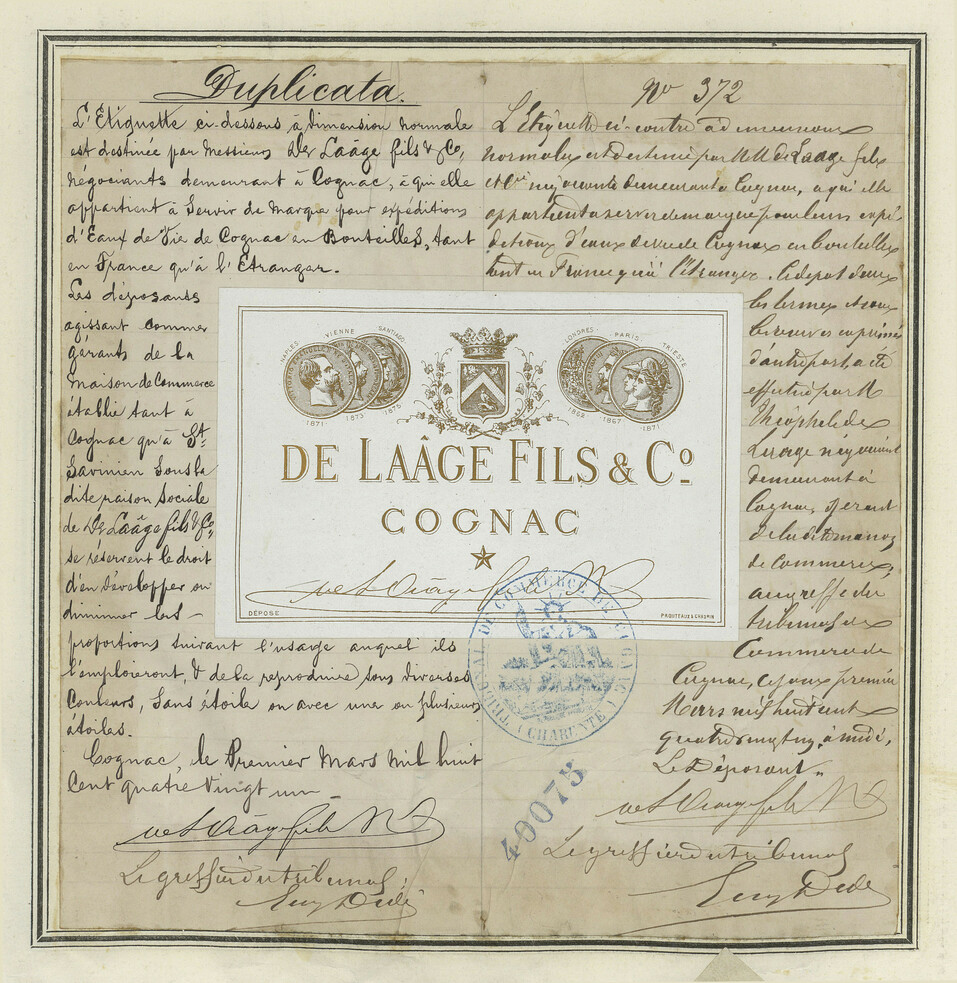 Duplicata.
L'Etiquette ci-dessous à dimension normale
est destinée par Messieurs De Laâge fils & Co,
négociants demeurant à Cognac, à qui elle
appartient à Servir de Marque pour expéditions
d'Eaux de Vie de Cognac en Bouteilles, tant
en France qu'à l'Etranger.
Les déposants
agissant comme
gérants de la
Maison de Commerce
établie tant à
Cognac qu'à St
Savinien Sous la
dite raison sociale
de De Laâge fils & Co,
se réservent le droit
d'en développer ou
diminuer les
proportions suivant l'usage auquel ils
l'emploieront, & de la reproduire sous diverses
Couleurs, Sans étoile ou avec une ou plusieurs
étoiles.
Cognac, le Premier Mars Mil huit
Cent quatre Vingt un
Le greffier du tribunal,
No 372
L'Etiquette ci-contre à dimensions
normales est destinée par MM de Laage fils
et Cie négociants demeurant à Cognac, à qui elle
appartient à servir de marque pour leurs expé
ditions d'eaux de vie de Cognac en bouteilles
tant en France qu'à l'étranger. Le dépôt dans
les termes et sous
les réserves exprimés
d'autre part, a été
effectué par M
Théophile de
Laage négociant
demeurant à
Cognac, gérant
de la dite maison
de Commerce,
au greffe du
tribunal de
Commerce de
Cognac, ce jour premier
Mars mil huit cent
quatre vingt un, à midi,
Le Déposant.
Le greffier du tribunal
NAPLES
VIENNE
SANTIAGO
1871
1873
1875
LONDRES
PARIS
TRIESTE
1862
1867
1871
DE LAÂGE FILS & Co
COGNAC
DÉPOSÉ
PROUTEAUX & CHASPIN
TRIBUNAL DE COMMERCE DE COGNAC
(CHARENTE)
40075